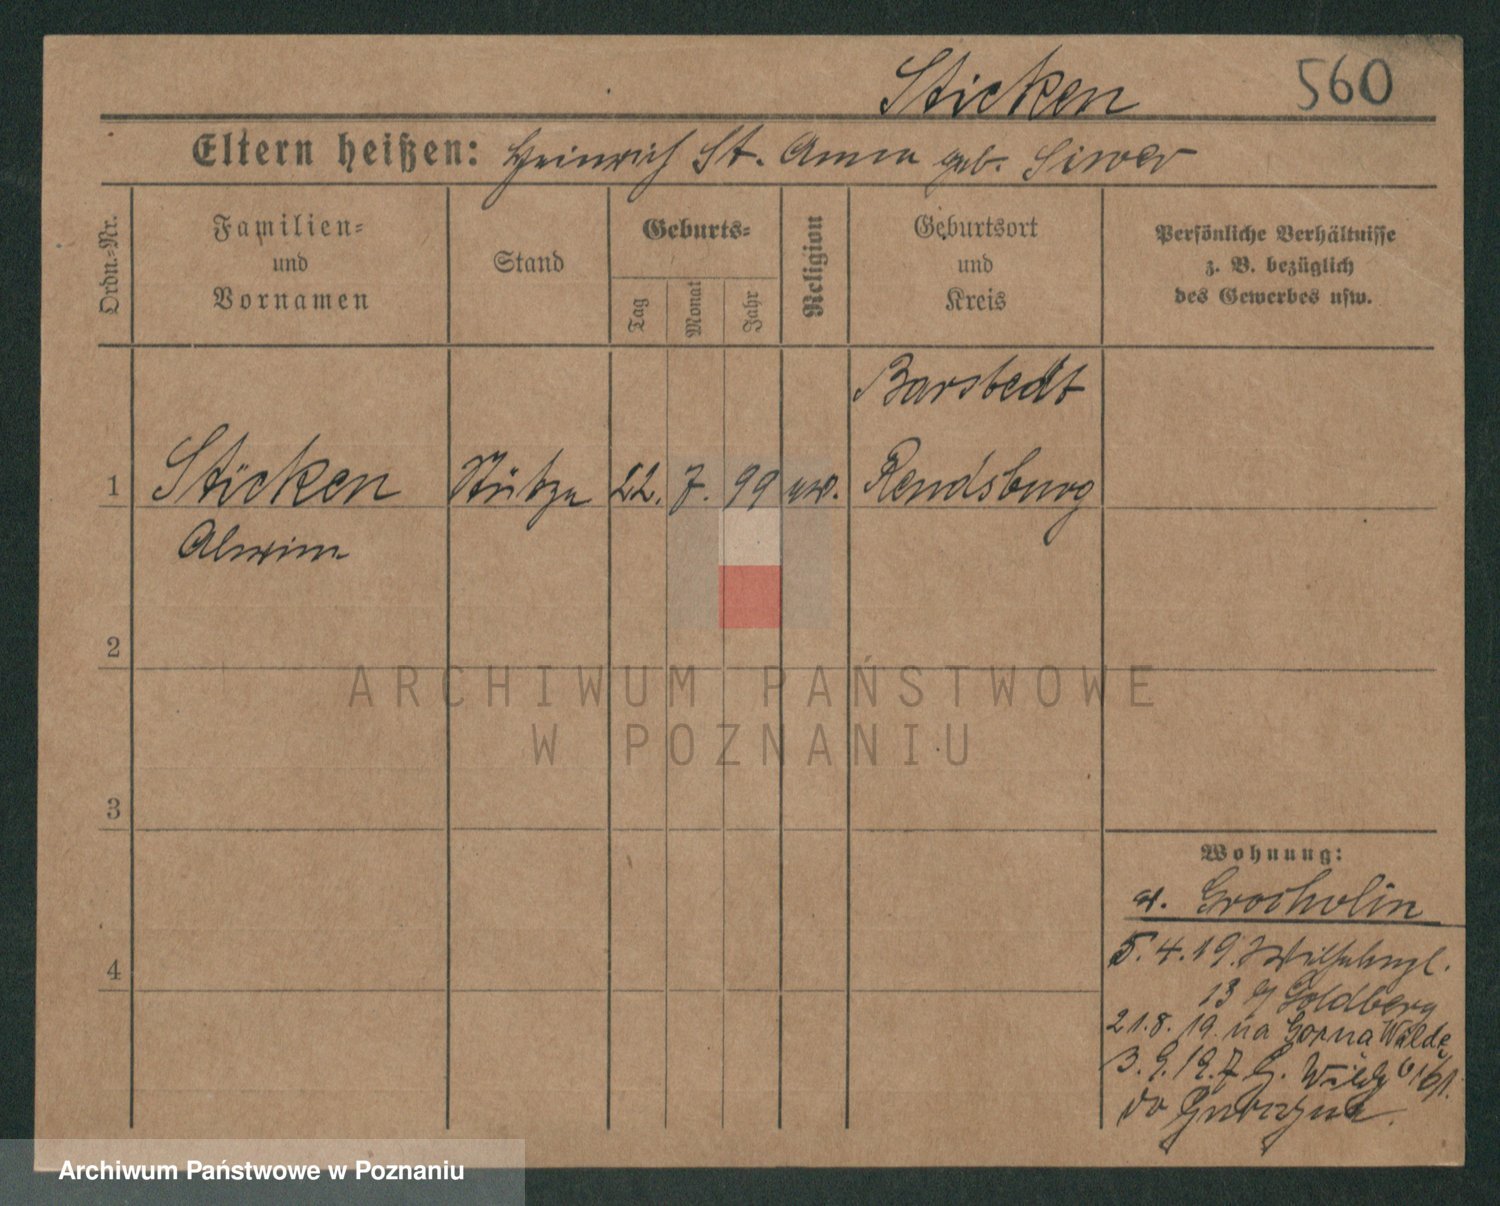 Sticken 560
Eltern heißen: Heinrich St. Anna geb. Siwer
Ordn.-Nr.
Familien-
und
Vornamen
Stand
Geburts-
Tag
Monat
Jahr
Religion
Geburtsort
und
Kreis
Persönliche Verhältnisse
z. B. bezüglich
des Gewerbes usw.
Barstedt
1 Sticken Stütze 22. 7. 99 ev. Rendsburg
Alwine
2
3
4
Wohnung:
a. Grocholin
5.4.19.
13 Goldberg
21.8.19. na Gorna Wilde
3.9.19. z G. Wildy
do
ARCHIWUM PAŃSTWOWE
W POZNANIU
Archiwum Państwowe w Poznaniu